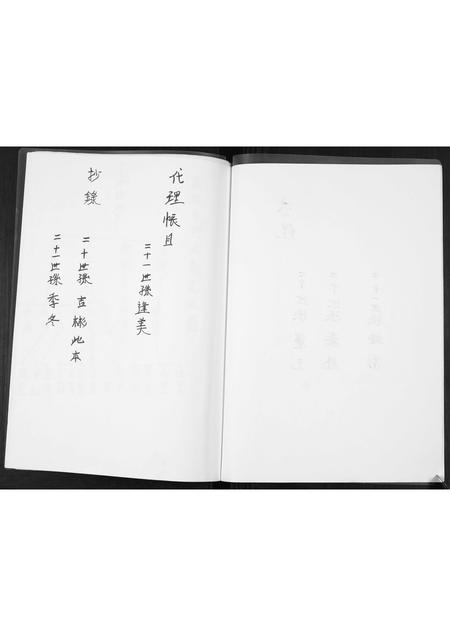 代理帳目
二十一世孫逢美
抄錄
二十世孫吉彬此本
二十一世孫季冬